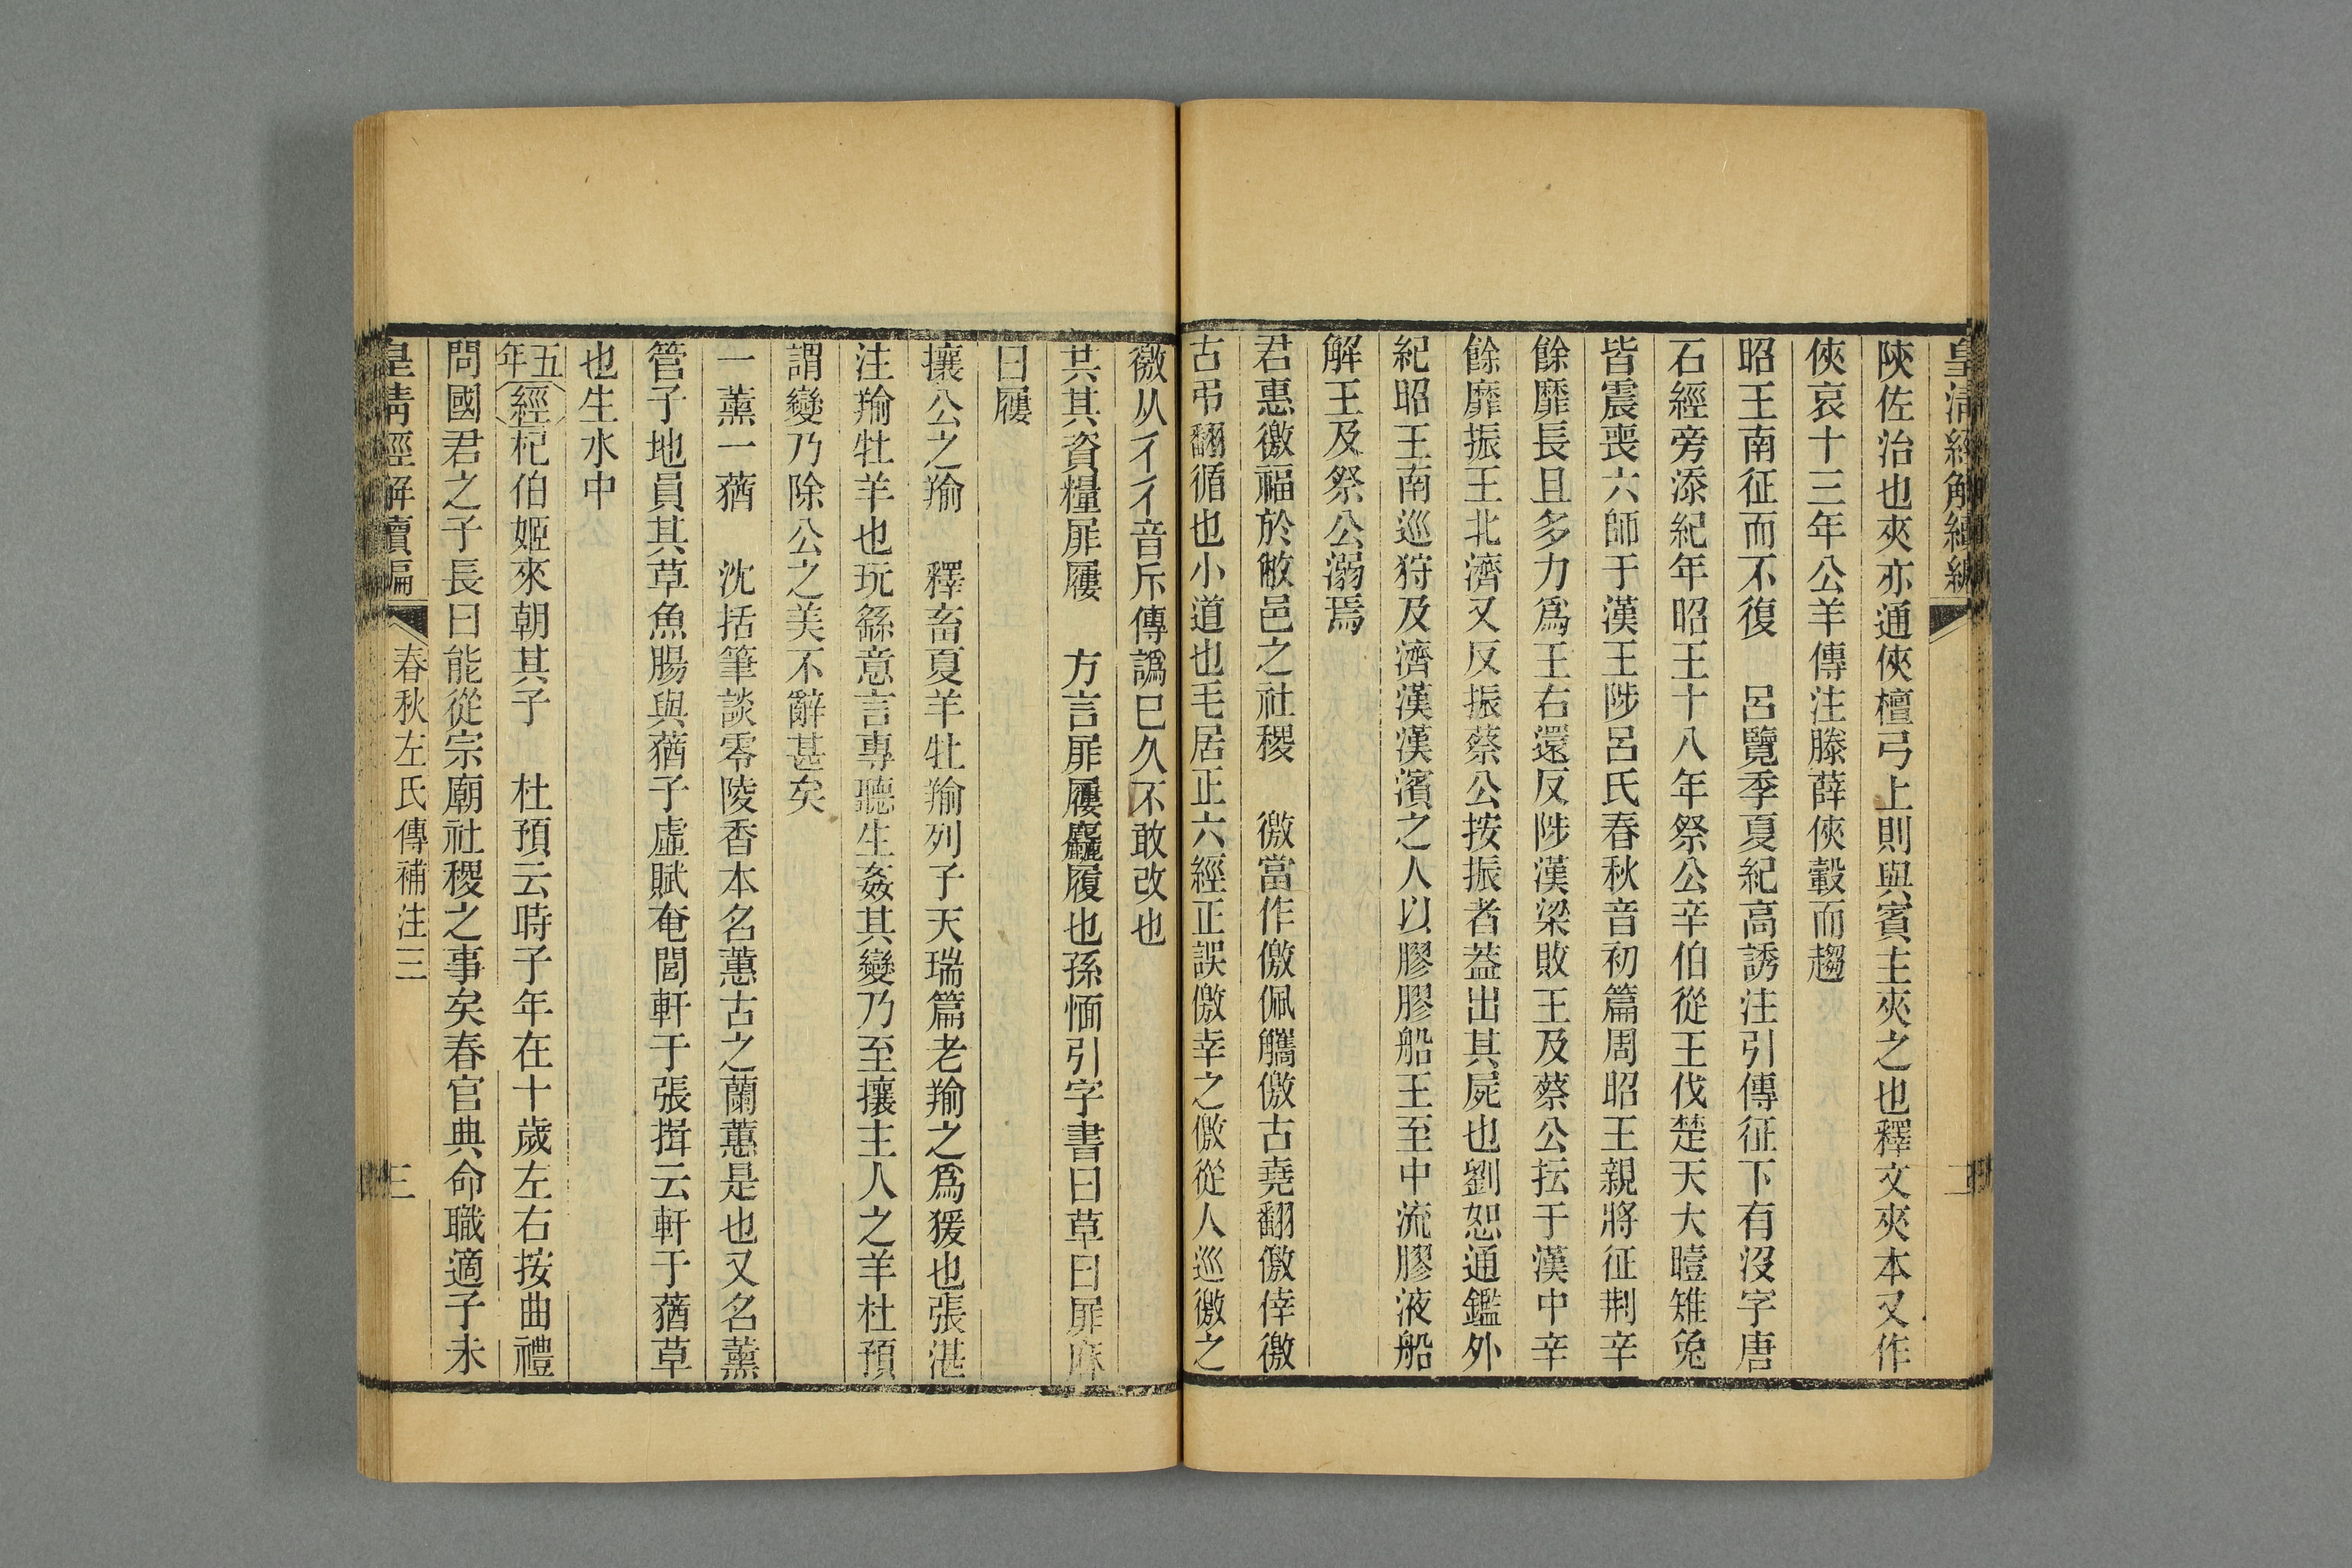 皇清經解續編
二
陝佐治也夾亦通俠檀弓上則與賓主夾之也釋文夾本又作
俠哀十三年公羊傳注滕薛俠轂而趨
昭王南征而不復　呂覽季夏紀高誘注引傳征下有沒字唐
石經旁添紀年昭王十八年祭公辛伯從王伐楚天大曀雉兔
皆震喪六師于漢王陟呂氏春秋音初篇周昭王親將征荆辛
餘靡長且多力爲王右還反陟漢梁敗王及蔡公抎于漢中辛
餘靡振王北濟又反振蔡公按振者葢出其屍也劉恕通鑑外
紀昭王南巡狩及濟漢漢濱之人以膠膠船王至中流膠液船
解王及祭公溺焉
君惠徼福於敝邑之社稷　徼當作儌佩觿儌古堯翻儌倖徼
古弔翻循也小道也毛居正六經正誤儌幸之儌從人巡徼之
徼从彳彳音斥傳譌已久不敢改也
共其資糧屝屨　方言屝屨麤履也孫愐引字書曰草曰屝麻
曰屨
攘公之羭　釋畜夏羊牡羭列子天瑞篇老羭之爲猨也張湛
注羭牡羊也玩繇意言專聽生姦其變乃至攘主人之羊杜預
謂變乃除公之美不辭甚矣
一薰一蕕　沈括筆談零陵香本名蕙古之蘭蕙是也又名薰
管子地員其草魚腸與蕕子虛賦奄閭軒于張揖云軒于蕕草
也生水中
五年經杞伯姬來朝其子　杜預云時子年在十歲左右按曲禮
問國君之子長曰能從宗廟社稷之事矣春官典命職適子未
皇清經解續編
春秋左氏傳補注三
三